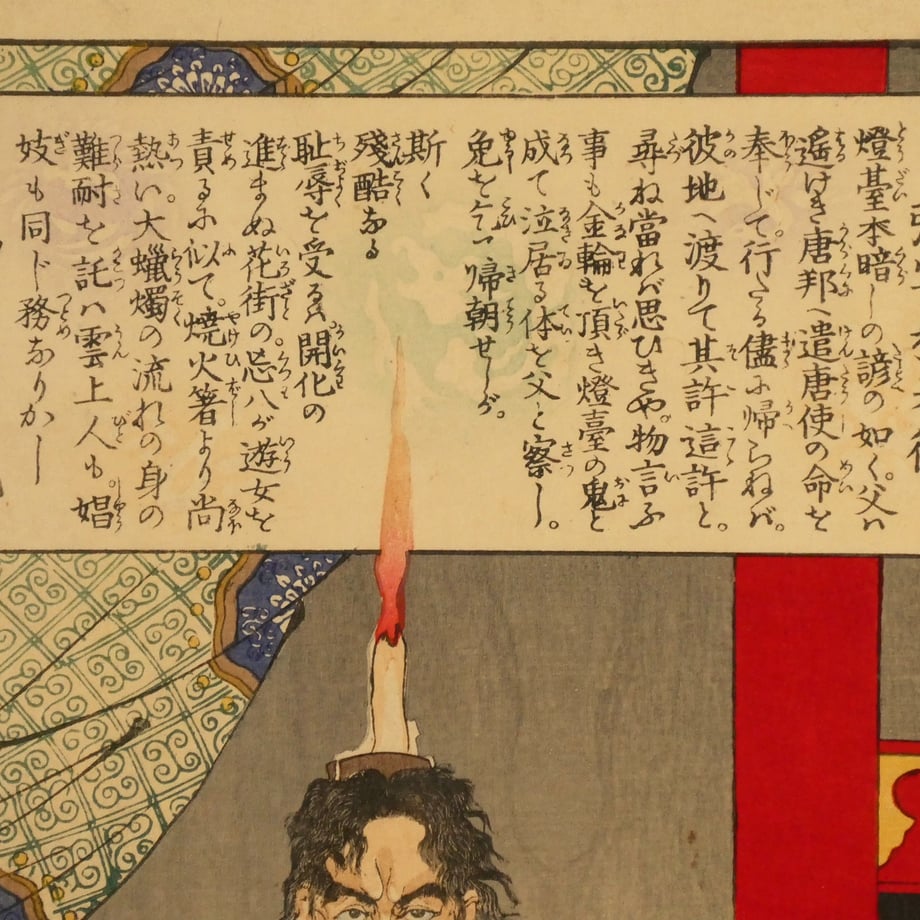 燈臺本暗しの諺の如く。父ハ
遥けき唐邦へ遣唐使の命を
奉じて。行たる儘に帰らねバ。
彼地へ渡りて其許這許と。
尋ね當れバ思ひきや。物言ふ
事も金輪を頂き燈臺の鬼と
成て泣居る体を父と察し。
免を乞て帰朝せしが。
斯く
残酷なる
耻辱を受るハ。開化の
進まぬ花街の忘八が遊女を
責るに似て。焼火箸より尚
熱い大蠟燭の流れの身の
難耐を託ハ雲上人も。娼
妓も同じ務なりかし